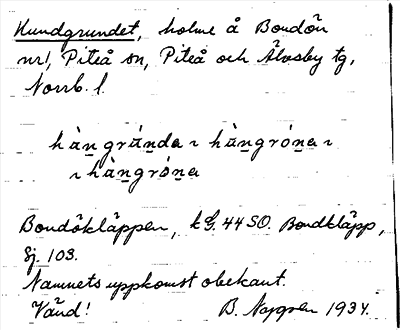 Hundgrundet, holme å Bondön
nr1, Piteå sn, Piteå och Älvsby tg,
Norrb. l.
hàn̲grún̲da ~ hàn̲grón̲a ~
~ hàn̲gróna
Bondökläppen, kG. 44 SO. Bondkläpp,
Sj. 103.
Namnets uppkomst obekant.
Vänd! B. Nygren 1934.